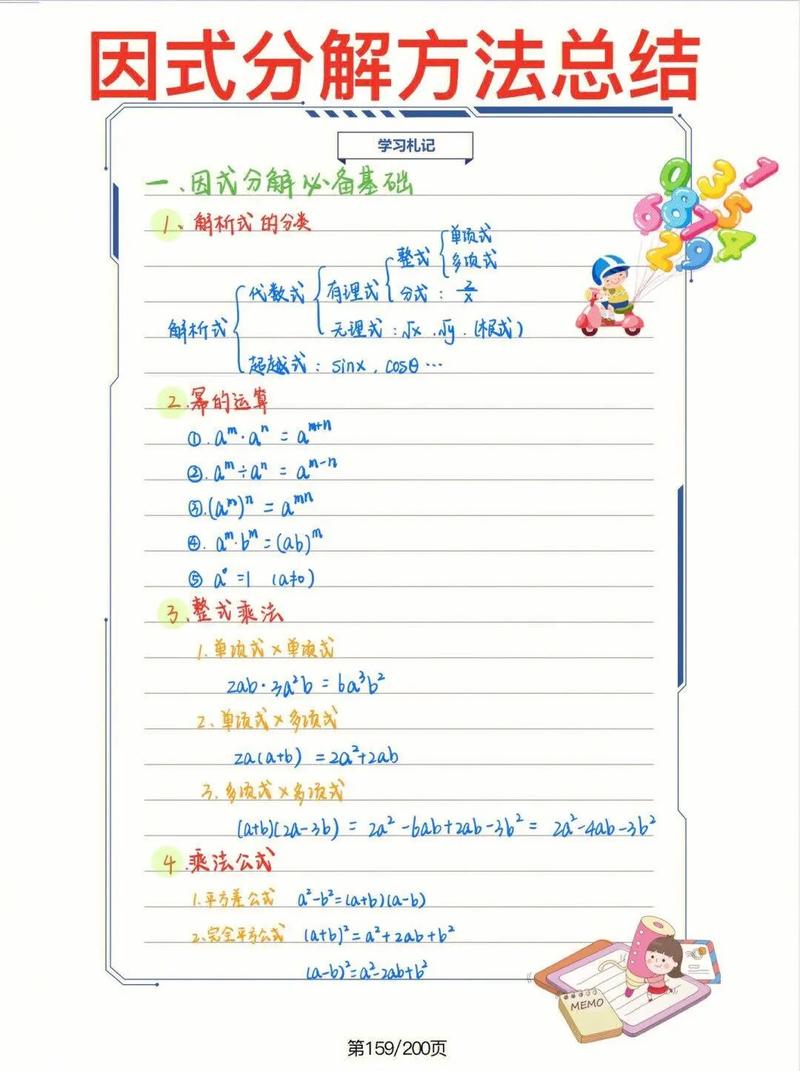 因式分解方法总结
学习札记
一、因式分解必备基础
1、解析式的分类
解析式 { 代数式 { 有理式 { 整式 { 单项式
多项式
分式：2/x
无理式：√x .√y .(根式)
超越式：sinx , cosθ …
2.幂的运算
①. aᵐ·aⁿ = aᵐ⁺ⁿ
②. aᵐ÷aⁿ = aᵐ⁻ⁿ
③.(aᵐ)ⁿ = aᵐⁿ
④. aᵐ·bᵐ=(ab)ᵐ
⑤ a⁰ =1 (a≠0)
3、整式乘法
1.单项式×单项式
2ab·3a²b = 6a³b²
2、单项式×多项式
2a(a+b) =2a²+2ab
3.多项式×多项式
(a+b)(2a-3b) = 2a²-6ab+2ab-3b² = 2a²-4ab-3b²
4.乘法公式
1.平方差公式 a²-b²=(a+b)(a-b)
2.完全平方公式 (a+b)²=a²+2ab+b²
(a-b)²=a²-2ab+b²
0 3 1
6 8 7 5
2 9 4
MEMO
第159/200页